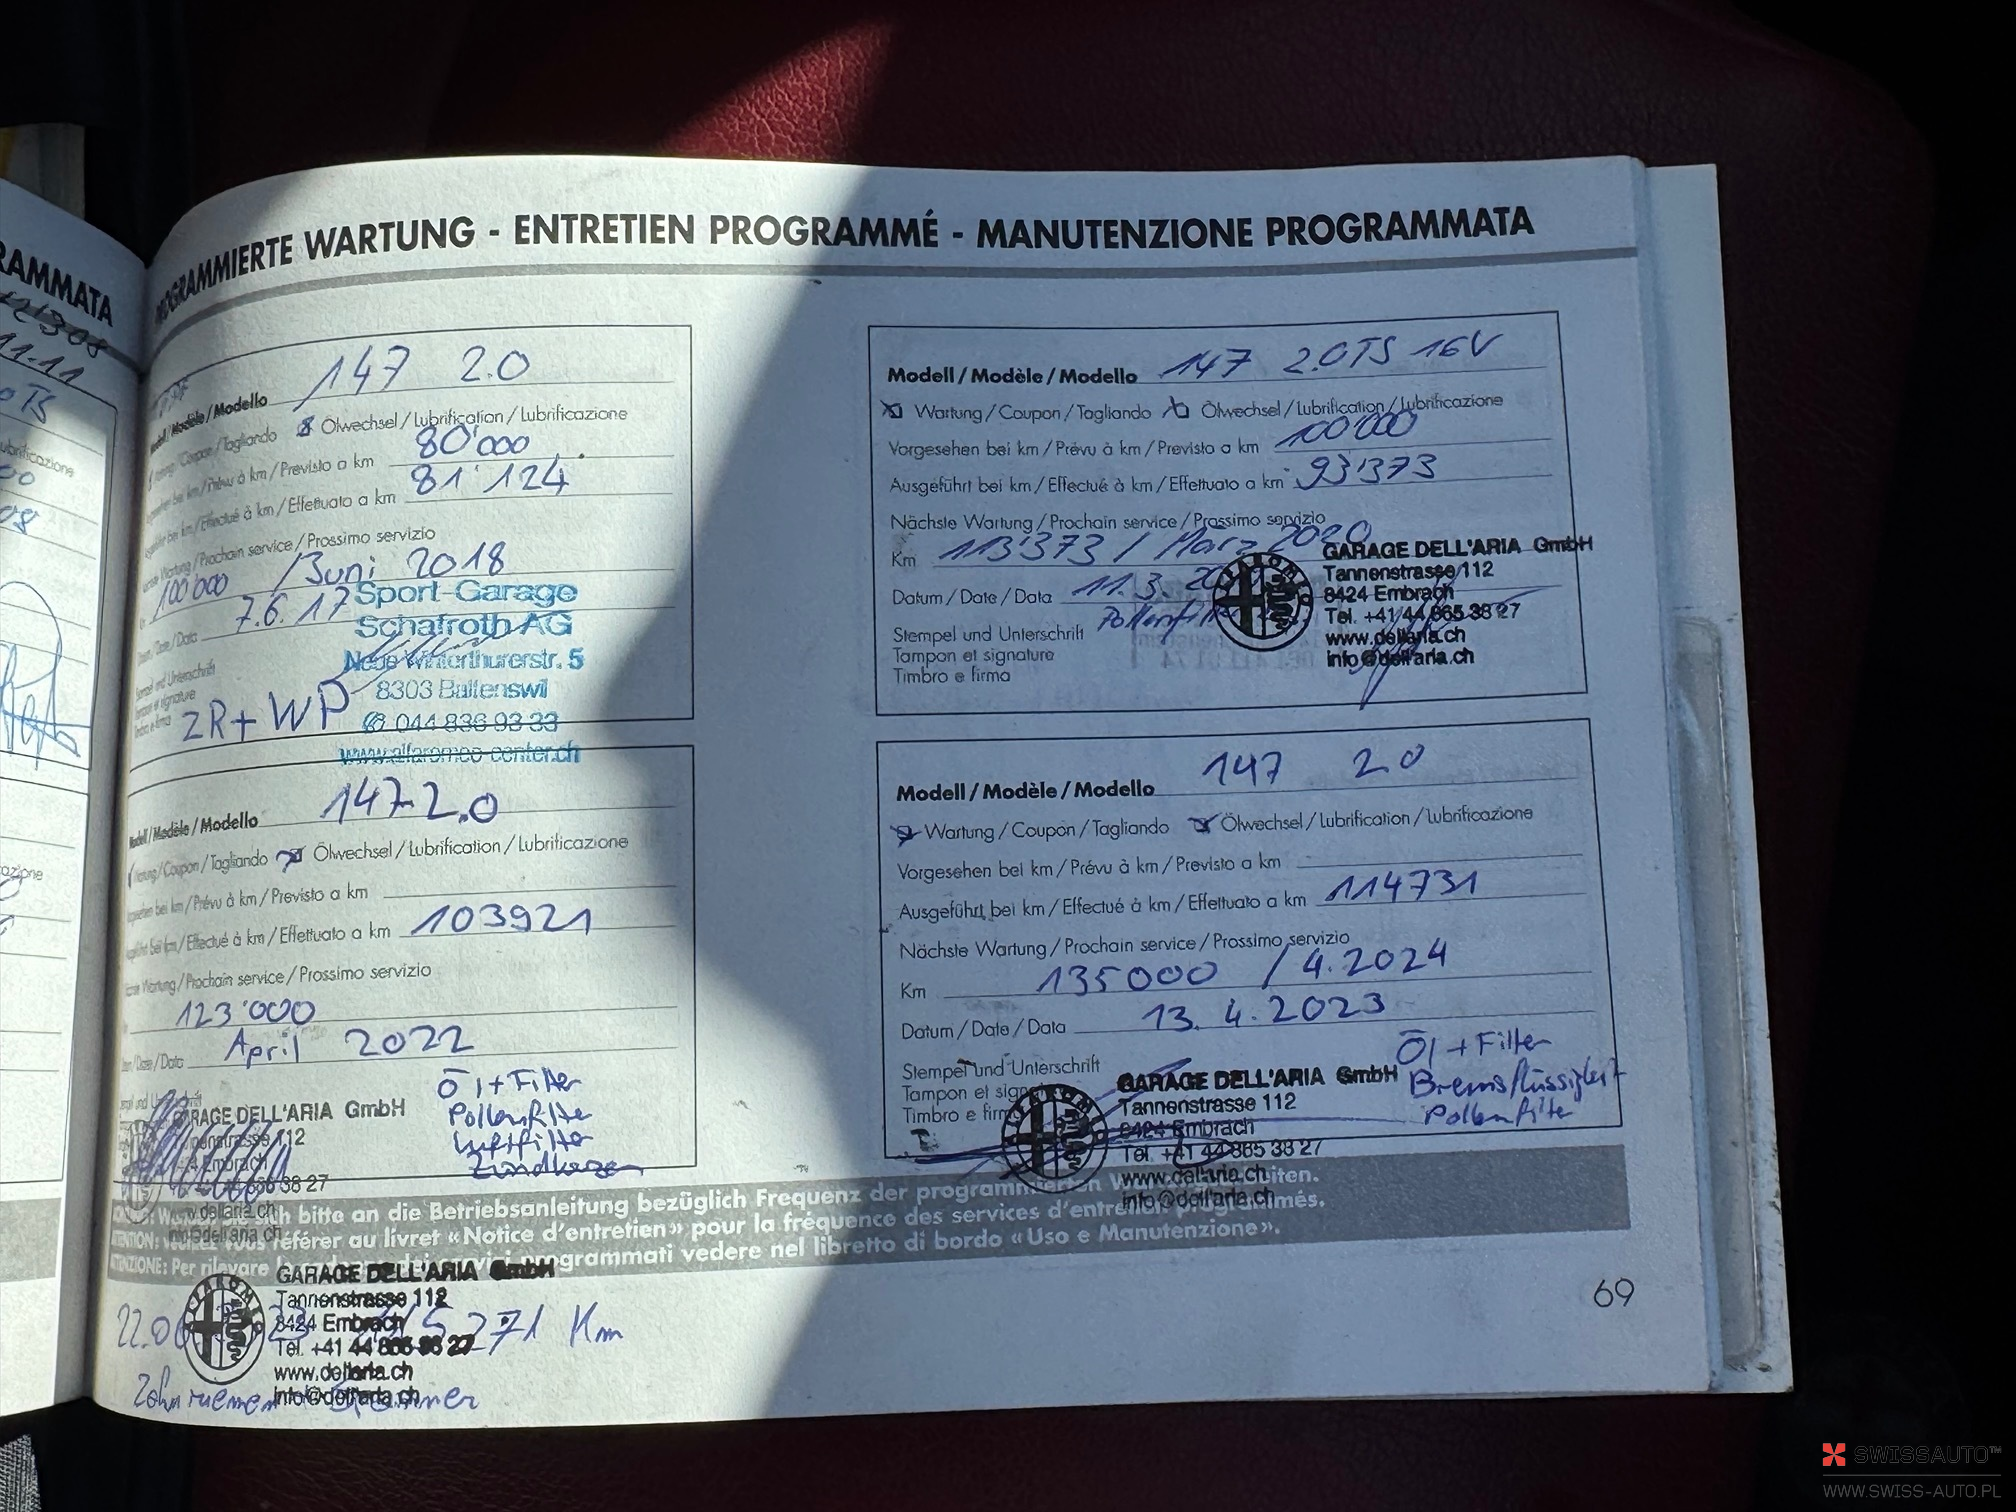 RAMMATA
12308
11.11
PROGRAMMIERTE WARTUNG - ENTRETIEN PROGRAMMÉ - MANUTENZIONE PROGRAMMATA
Modell / Modèle / Modello 147 2.0
Wartung / Coupon / Tagliando Ölwechsel / Lubrification / Lubrificazione
Vorgesehen bei km / Prévu à km / Previsto a km 80'000
Ausgeführt bei km / Effectué à km / Effettuato a km 81'124
Nächste Wartung / Prochain service / Prossimo servizio
Km 100'000 / Juni 2018
Datum / Date / Data 7.6.17
Sport Garage
Schafroth AG
Neue Winterthurerstr. 5
8303 Baltenswil
044 836 93 33
www.alfaromeo-center.ch
Stempel und Unterschrift
Tampon et signature
Timbro e firma
ZR + WP
Modell / Modèle / Modello 147 2.0
Wartung / Coupon / Tagliando Ölwechsel / Lubrification / Lubrificazione
Vorgesehen bei km / Prévu à km / Previsto a km
Ausgeführt bei km / Effectué à km / Effettuato a km 103921
Nächste Wartung / Prochain service / Prossimo servizio
123'000
Datum / Date / Data April 2022
GARAGE DELL'ARIA GmbH
Tannenstrasse 112
Embrach
38 27
www.dellaria.ch
info@dellaria.ch
Öl + Filter
Pollenfilter
Luftfilter
Zündkerzen
Modell / Modèle / Modello 147 2.0 TS 16V
Wartung / Coupon / Tagliando Ölwechsel / Lubrification / Lubrificazione
Vorgesehen bei km / Prévu à km / Previsto a km 100'000
Ausgeführt bei km / Effectué à km / Effettuato a km 93'373
Nächste Wartung / Prochain service / Prossimo servizio
Km 113'373 / März 2020
Datum / Date / Data 11.3.
Pollenfilter
Stempel und Unterschrift
Tampon et signature
Timbro e firma
GARAGE DELL'ARIA GmbH
Tannenstrasse 112
8424 Embrach
Tel. +41 44 865 38 27
www.dellaria.ch
info@dellaria.ch
Modell / Modèle / Modello 147 2.0
Wartung / Coupon / Tagliando Ölwechsel / Lubrification / Lubrificazione
Vorgesehen bei km / Prévu à km / Previsto a km
Ausgeführt bei km / Effectué à km / Effettuato a km 114731
Nächste Wartung / Prochain service / Prossimo servizio
Km 135000 / 4.2024
Datum / Date / Data 13.4.2023
Stempel und Unterschrift
Tampon et signature
Timbro e firma
GARAGE DELL'ARIA GmbH
Tannenstrasse 112
8424 Embrach
Tel. +41 44 865 38 27
www.dellaria.ch
info@dellaria.ch
Öl + Filter
Bremsflüssigkeit
Pollenfilter
bitte an die Betriebsanleitung bezüglich Frequenz der programmierten
ATTENTION: Veuillez vous référer au livret «Notice d'entretien» pour la fréquence des services d'entretien programmés.
ATTENZIONE: Per rilevare servizi programmati vedere nel libretto di bordo «Uso e Manutenzione».
GARAGE DELL'ARIA GmbH
Tannenstrasse 112
8424 Embrach
Tel. +41 44 865 38 27
www.dellaria.ch
info@dellaria.ch
271 Km
Zahnriemen
69
SWISSAUTO™
WWW.SWISS-AUTO.PL